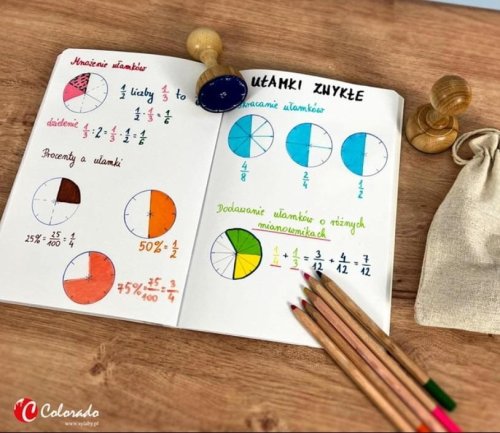 Mnożenie ułamków
1/2 liczby 1/3 to
1/2 · 1/3 = 1/6
dzielenie 1/3 : 2 = 1/3 · 1/2 = 1/6
Procenty a ułamki
25% = 25/100 = 1/4
50% = 1/2
75% = 75/100 = 3/4
UŁAMKI ZWYKŁE
kracanie ułamków
4/8
2/4
1/2
Dodawanie ułamków o różnych
mianownikach
1/4 + 1/3 = 3/12 + 4/12 = 7/12
Colorado
www.sylaby.pl